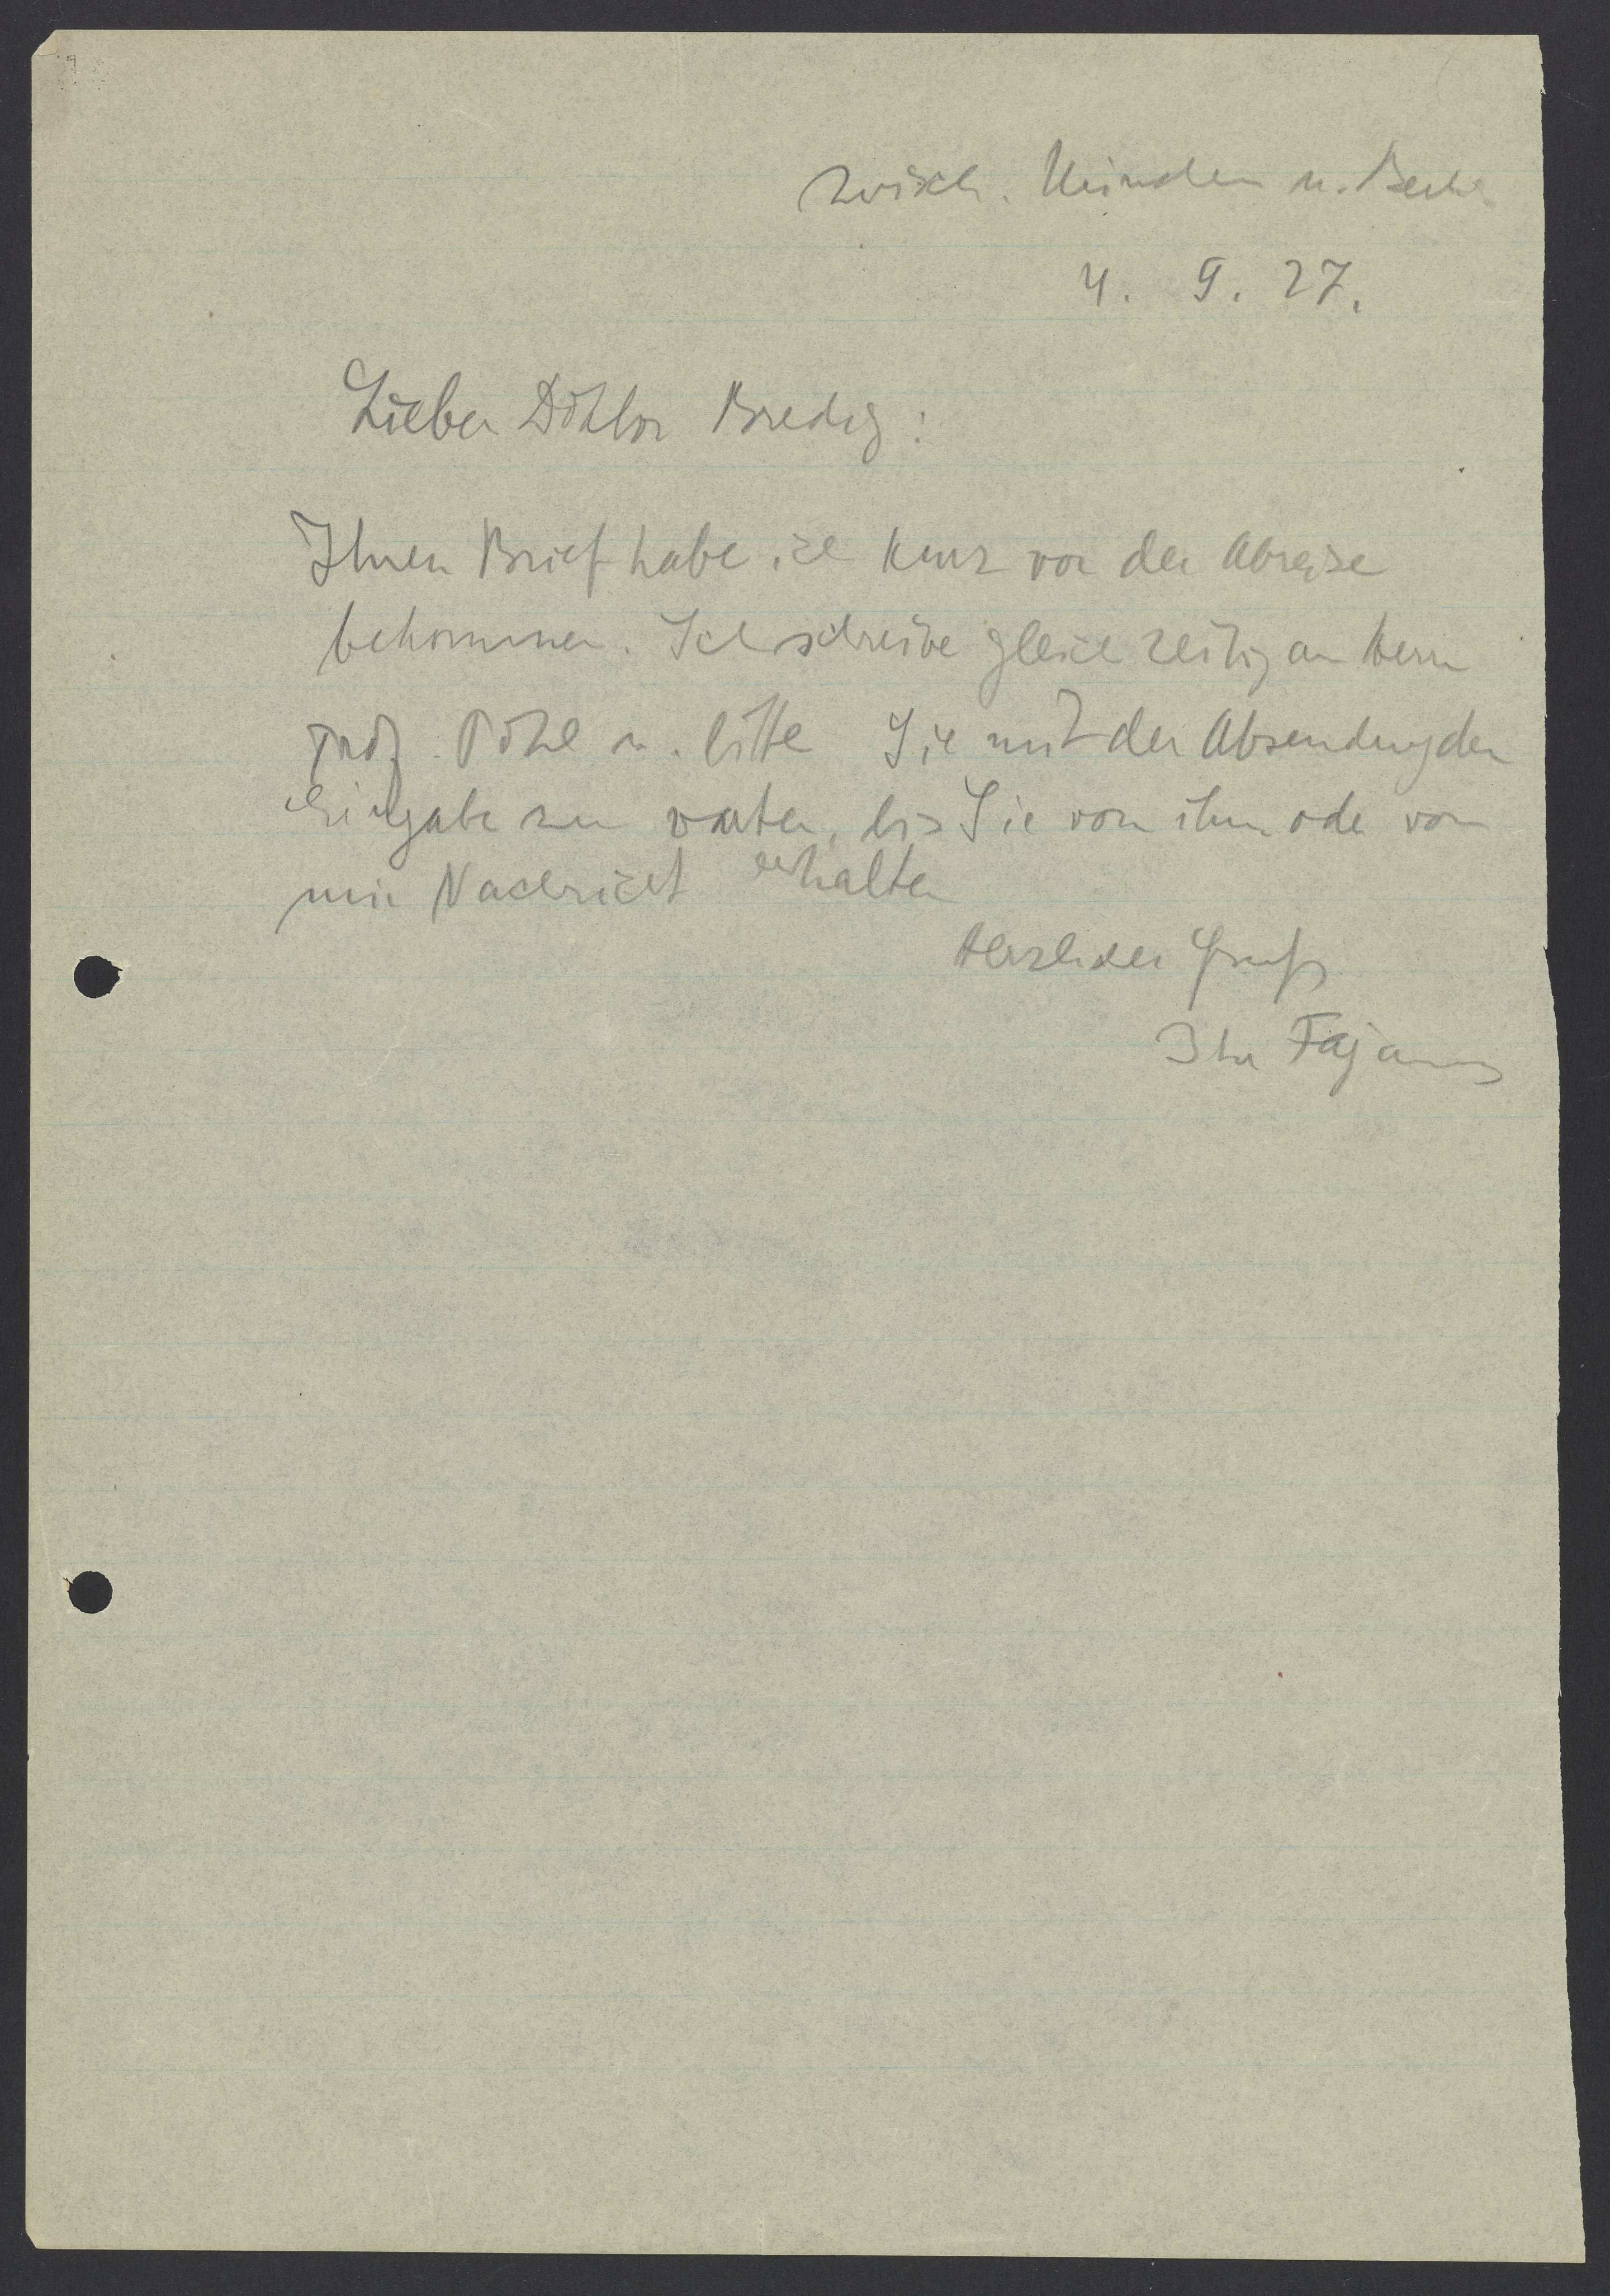 Zwisch. München u. Berlin
4. 9. 27.
Lieber Doktor Bredig:
Ihren Brief habe ich kurz vor der Abreise
bekommen. Ich schreibe gleichzeitig an Herrn
Prof. Pohl u. bitte Sie mit der Absendung der
Eingabe zu warten, bis Sie von ihm oder von
mir Nachricht erhalten
Herzlicher Gruß
Ihr Fajans